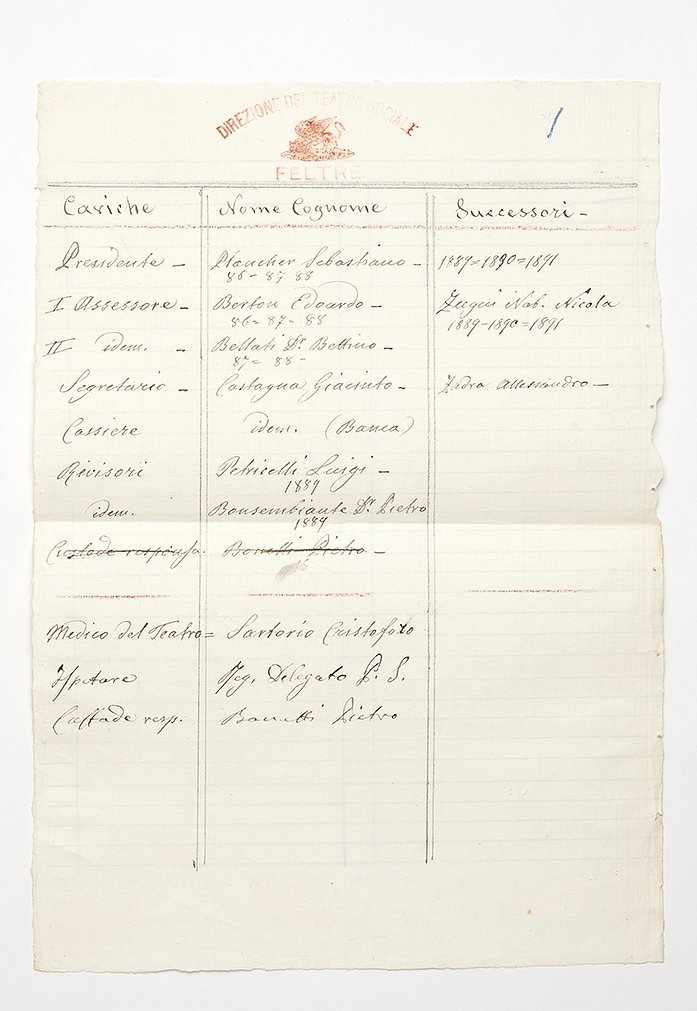 DIREZIONE DEL TEATRO SOCIALE
FELTRE
1
Cariche Nome Cognome Successori -
Presidente - Plancher Sebastiano - 1889=1890=1891
86- 87 88
I Assessore - Berton Edoardo - Zugni Nob. Nicola
86= 87- 88 1889-1890=1891
II idem. - Bellati Dr. Bettino -
87= 88-
Segretario - Castagna Giacinto - Zadra Allessandro -
Cassiere idem. (Banca)
Revisori Petricelli Luigi -
1889
idem. Bonsembiante Dr. Pietro
1889
Custode responsa. Bonetti Pietro -
Medico del Teatro = Sartorio Cristoforo
Delegato P. S.
Custode resp. Bonetti Pietro